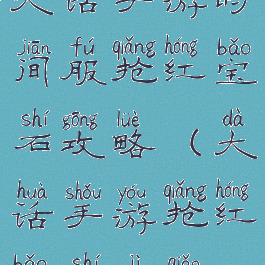 大话手游时
jiān fú qiǎng hóng bǎo
间服抢红宝
shí gōng lüè dà
石攻略（大
huà shǒu yóu qiǎng hóng
话手游抢红
bǎo shí jì qiǎo